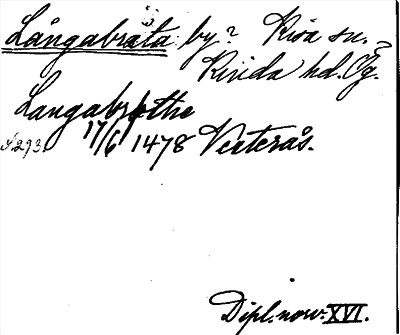 Långabråta by? Kisa sn.
Kinda hd. Ög.?
Langabrothe
s. 293. 17/6 1478 Vesterås.
Dipl. norv. XVI.